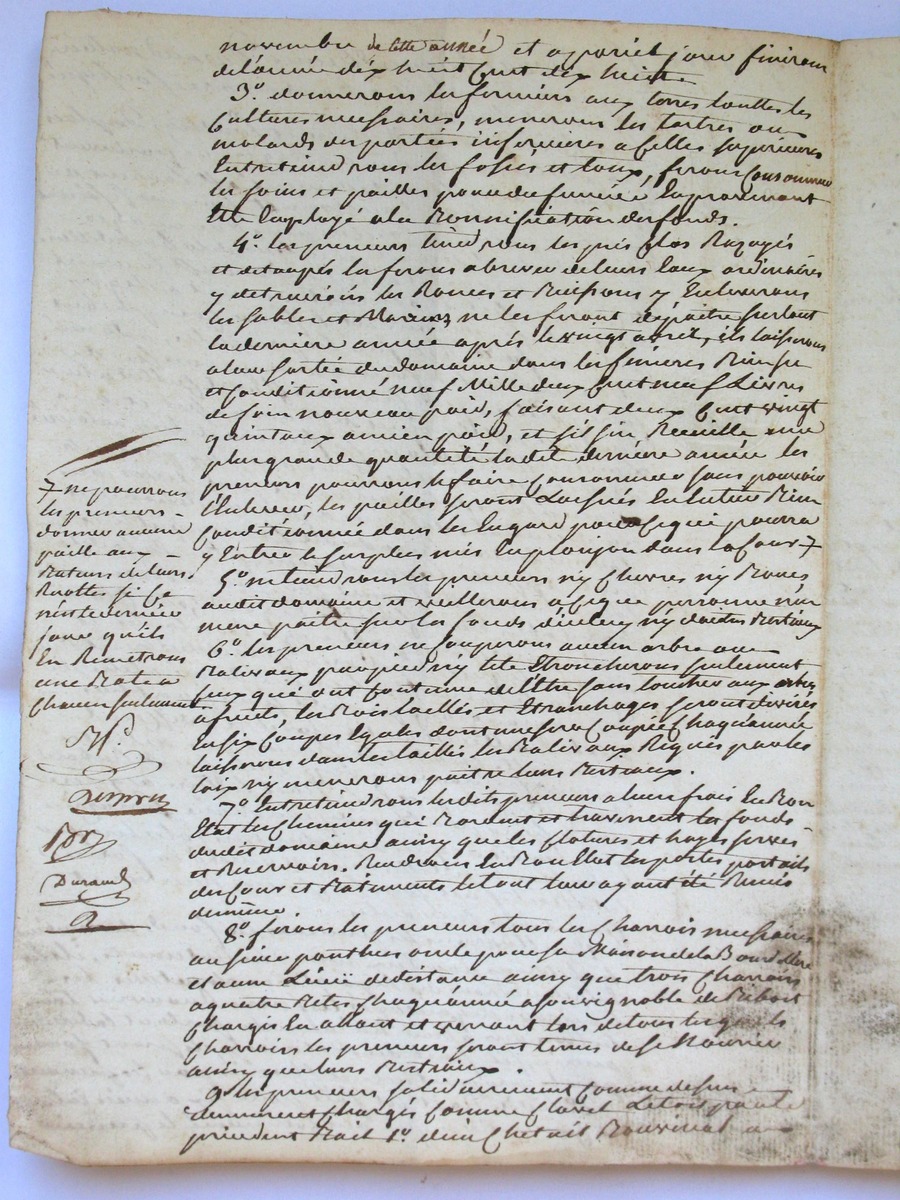 novembre de cette année et a pareil jour finiront
de l'année dix huit cent dix huit
3.o donneront les fermiers aux terres touttes les
Cultures necssaires, meneront les tertres ou
molards des parties inferieures a Celles superieures
Entretiendrons les fossés et toux, feront Consommer
les foins et pailles pour du fumier la provenant
Etre Employé a la Bonnification des fonds.
4.o les preneurs tiendrons les prés Clos Razayés
et detaupés les ferons abrever de leurs Eaux ordinaires
y detruirons les Ronces et Buissons y Enleverons
les sables et ne les feront depaitre surtout
la derniere année aprés le vingt avril, ils laisserons
a leur sortie du domaine dans les fenieres Bien sec
et Conditionné neuf Mille deux Cent neuf Livres
de foin nouveau poid, faisant deux Cent vingt
quintaux ancien poid, et s'il s'en Recueille une
plus grande quantité la dite derniere année les
preneurs pourrons le faire Consommer sans pouvoir
l'Enlever, les pailles seront Laissés En lutier Bien
Conditionnée dans les Engard pour ce qui pourra
y Entrer le surplus mis En plonjon dans la Cour 7
5.o ne tiendrons les preneurs n'y Chevres n'y Boucs
audit domaine et veillerons a ce que personne n'en
mene paitre sur les fonds d'iceluy n'y d'autres Bestiaux
6.o les preneurs ne Couperons aucun arbre ou
Baliveaux par pied n'y tête Etroncherons seulement
Ceux qui ont Coutume de l'Etre sans toucher aux arbres
a fruits, les Bois taillés et Etranchages seront divisés
En six Coupes Egales dont une sera Coupée Chaqu'année
laisserons dans les taillés les Balivaux Requis par les
loix n'y menerons paitre leurs Bestiaux.
7.o Entretiendrons lesdits preneurs a leur frais En Bon
Etat les Chemins qui Bordent et traversent les fonds
dudit domaine ainsy que les Clotures et hayes fossés
et Reservoirs. Rendrons En Bon Etat les portes portails
des Cour et Batiments le tout leur ayant été Remis
de meme.
8.o ferons les preneurs tous les Charrois necssaires
au sieur ponthus oncle pour sa Maison de la
et a une Lieüe de distance ainsy que trois Charrois
a quatre Betes Chaqu'année a son vignoble de
Chargés En allant et venant lors de tous lesquels
Charrois les preneurs seront tenus de se Nourrir
ainsy que leurs Bestiaux.
9. les preneurs solidairement Comme dessus
demeurent Chargés Comme Clavel Letois par le
precedent Bail 1.o d'un Chetail
7 ne pourrons
les preneurs
donner aucune
paille aux
Bateurs de leurs
Recoltes si Ce
n'est le dernier
jour qu'ils
En Remettrons
une Batée a
Chacun seulement
Durand